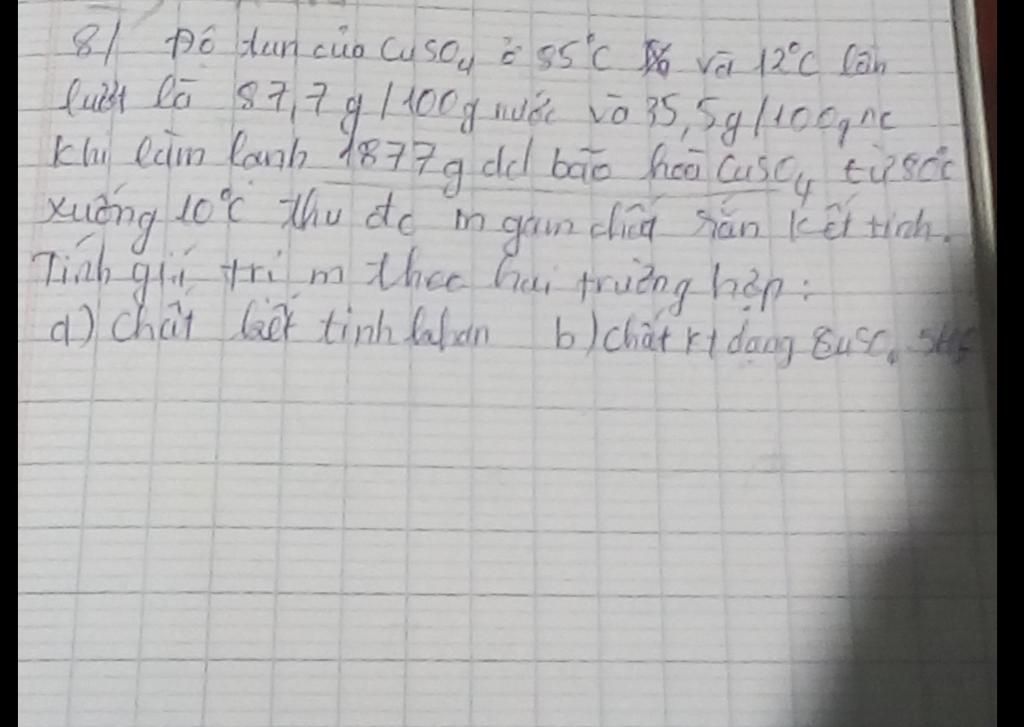 8/ Độ tan của CuSO4 ở 85°C và 12°C lần
lượt là 87,7g/100g nước và 35,5g/100g nc
Khi làm lạnh 1877g dd bão hoà CuSO4 từ 80°C
xuống 10°C thu đc m gam chất rắn kết tinh.
Tính giá trị m theo hai trường hợp:
a) chất kết tinh khan b) chất kt dạng